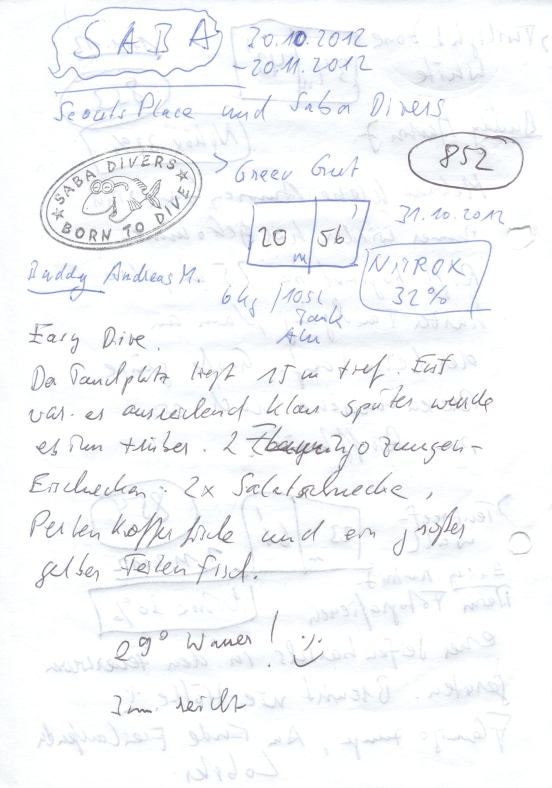 SABA 30.10.2012
- 20.11.2012
Scouts Place und Saba Divers
SABA DIVERS
BORN TO DIVE
> Green Gut
852
20 m 56'
31.10.2012
NITROX
32%
Buddy Andreas M.
6 kg / 10.5 l
Tank
Alu
Easy Dive.
Da Tauchplatz liegt 15 m tief. Erst
war es ausreichend klar später wurde
es trüber. 2 Flamingozungen-
Schnecken. 2x Salatschnecke,
Perlen Kofferfische und ein großer
gelber Feilenfisch.
29° Wasser!
3mm reicht